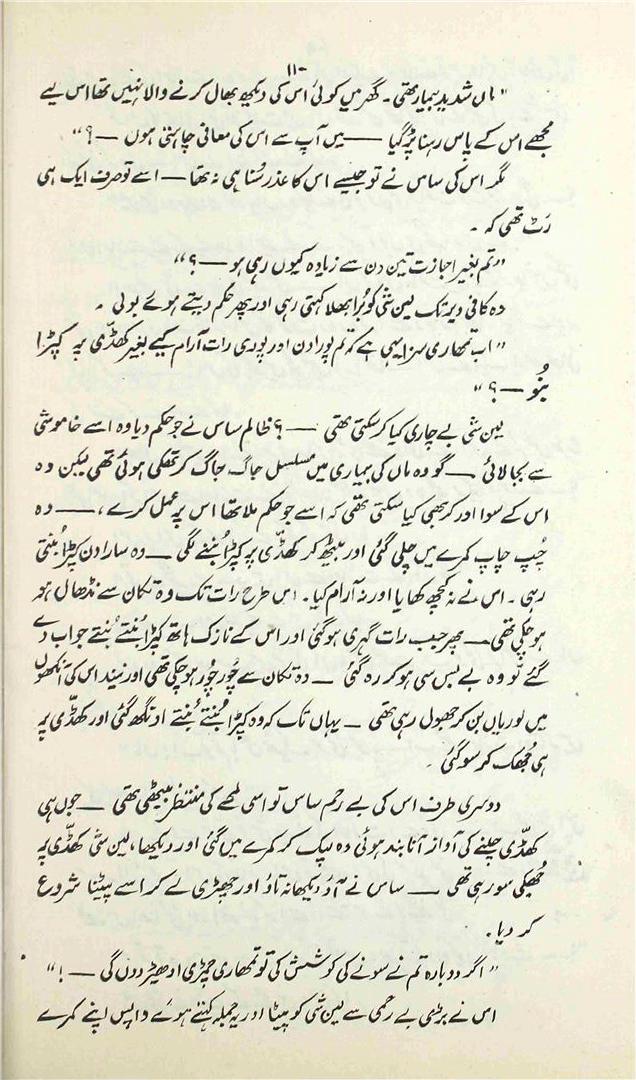 ۱۱۰
"ماں شدید بیمار تھی۔ گھر میں کوئی اس کی دیکھ بھال کرنے والا نہیں تھا اس لیے
مجھے اس کے پاس رہنا پڑ گیا —— میں آپ سے اس کی معافی چاہتی ہوں —؟"
مگر اس کی ساس نے تو جیسے اس کا عذر سُنا ہی نہ تھا — اسے تو صرف ایک ہی
رَٹ تھی کہ۔
"تم بغیر اجازت تین دن سے زیادہ کیوں رہی ہو —؟"
وہ کافی دیر تک لین شی کو بُرا بھلا کہتی رہی اور پھر حکم دیتے ہوئے بولی۔
"اب تمھاری سزا یہی ہے کہ تم پورا دن اور پوری رات آرام کیے بغیر کھڈّی پہ کپڑا
بُنو —؟"
لین شی بے چاری کیا کر سکتی تھی —؟ ظالم ساس نے جو حکم دیا وہ اسے خاموشی
سے بجا لائی — گو وہ ماں کی بیماری میں مسلسل جاگ جاگ کر تھکی ہوئی تھی لیکن وہ
اس کے سوا اور کر بھی کیا سکتی تھی کہ اسے جو حکم ملا تھا اس پر عمل کرے، — وہ
چُپ چاپ کمرے میں چلی گئی اور بیٹھ کر کھڈّی پر کپڑا بُننے لگی — وہ سارا دن کپڑا بُنتی
رہی۔ اس نے نہ کچھ کھایا اور نہ آرام کیا۔ اس طرح رات تک وہ تکان سے نڈھال ہو
ہو چکی تھی — پھر جب رات گہری ہو گئی اور اس کے نازک ہاتھ کپڑا بُنتے بُنتے جواب دے
گئے تو وہ بے بس سی ہو کر رہ گئی — وہ تکان سے چُور چُور ہو چکی تھی اور نیند اس کی آنکھوں
میں لوریاں بن کر جھول رہی تھی — یہاں تک کہ وہ کپڑا بُنتے بُنتے اونگھ گئی اور کھڈّی پہ
ہی جُھک کر سو گئی۔
دوسری طرف اس کی بے رحم ساس تو اسی لمحے کی منتظر بیٹھی تھی — جوں ہی
کھڈّی چلنے کی آواز آنا بند ہوئی وہ لپک کر کمرے میں گئی اور دیکھا، لین شی کھڈّی پہ
جُھکی سو رہی تھی — ساس نے آؤ دیکھا نہ تاؤ اور چھڑی لے کر اسے پیٹنا شروع
کر دیا۔
"اگر دوبارہ تم نے سونے کی کوشش کی تو تمھاری چمڑی ادھیڑ دوں گی —!"
اس نے بڑی بے رحمی سے لین شی کو پیٹا اور یہ جملہ کہتے ہوئے واپس اپنے کمرے